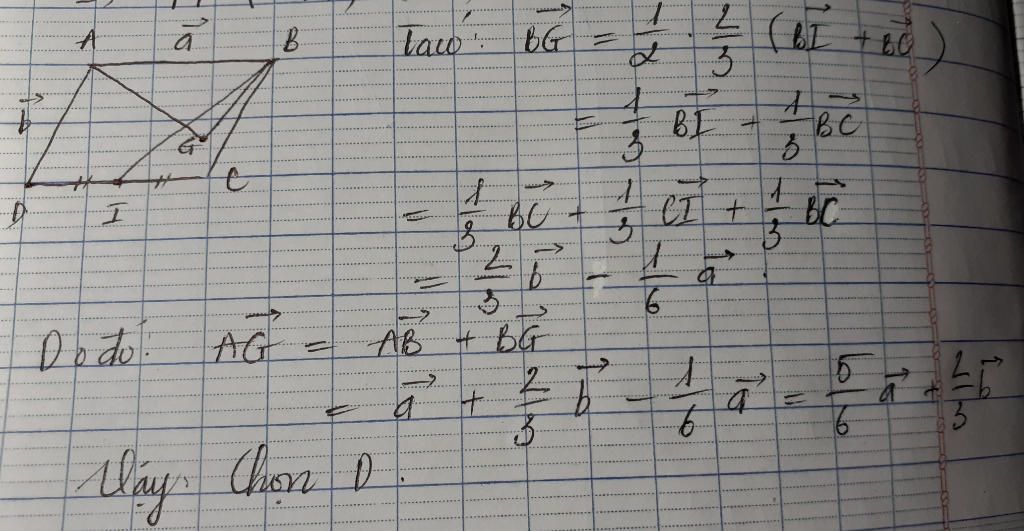 A a⃗ B
b⃗
G
D I C
Ta có: BG⃗ = 1/2 . 2/3 (BI⃗ + BC⃗)
= 1/3 BI⃗ + 1/3 BC⃗
= 1/3 BC⃗ + 1/3 CI⃗ + 1/3 BC⃗
= 2/3 b⃗ - 1/6 a⃗.
Do đó: AG⃗ = AB⃗ + BG⃗
= a⃗ + 2/3 b⃗ - 1/6 a⃗ = 5/6 a⃗ + 2/3 b⃗
Vậy: Chọn D.